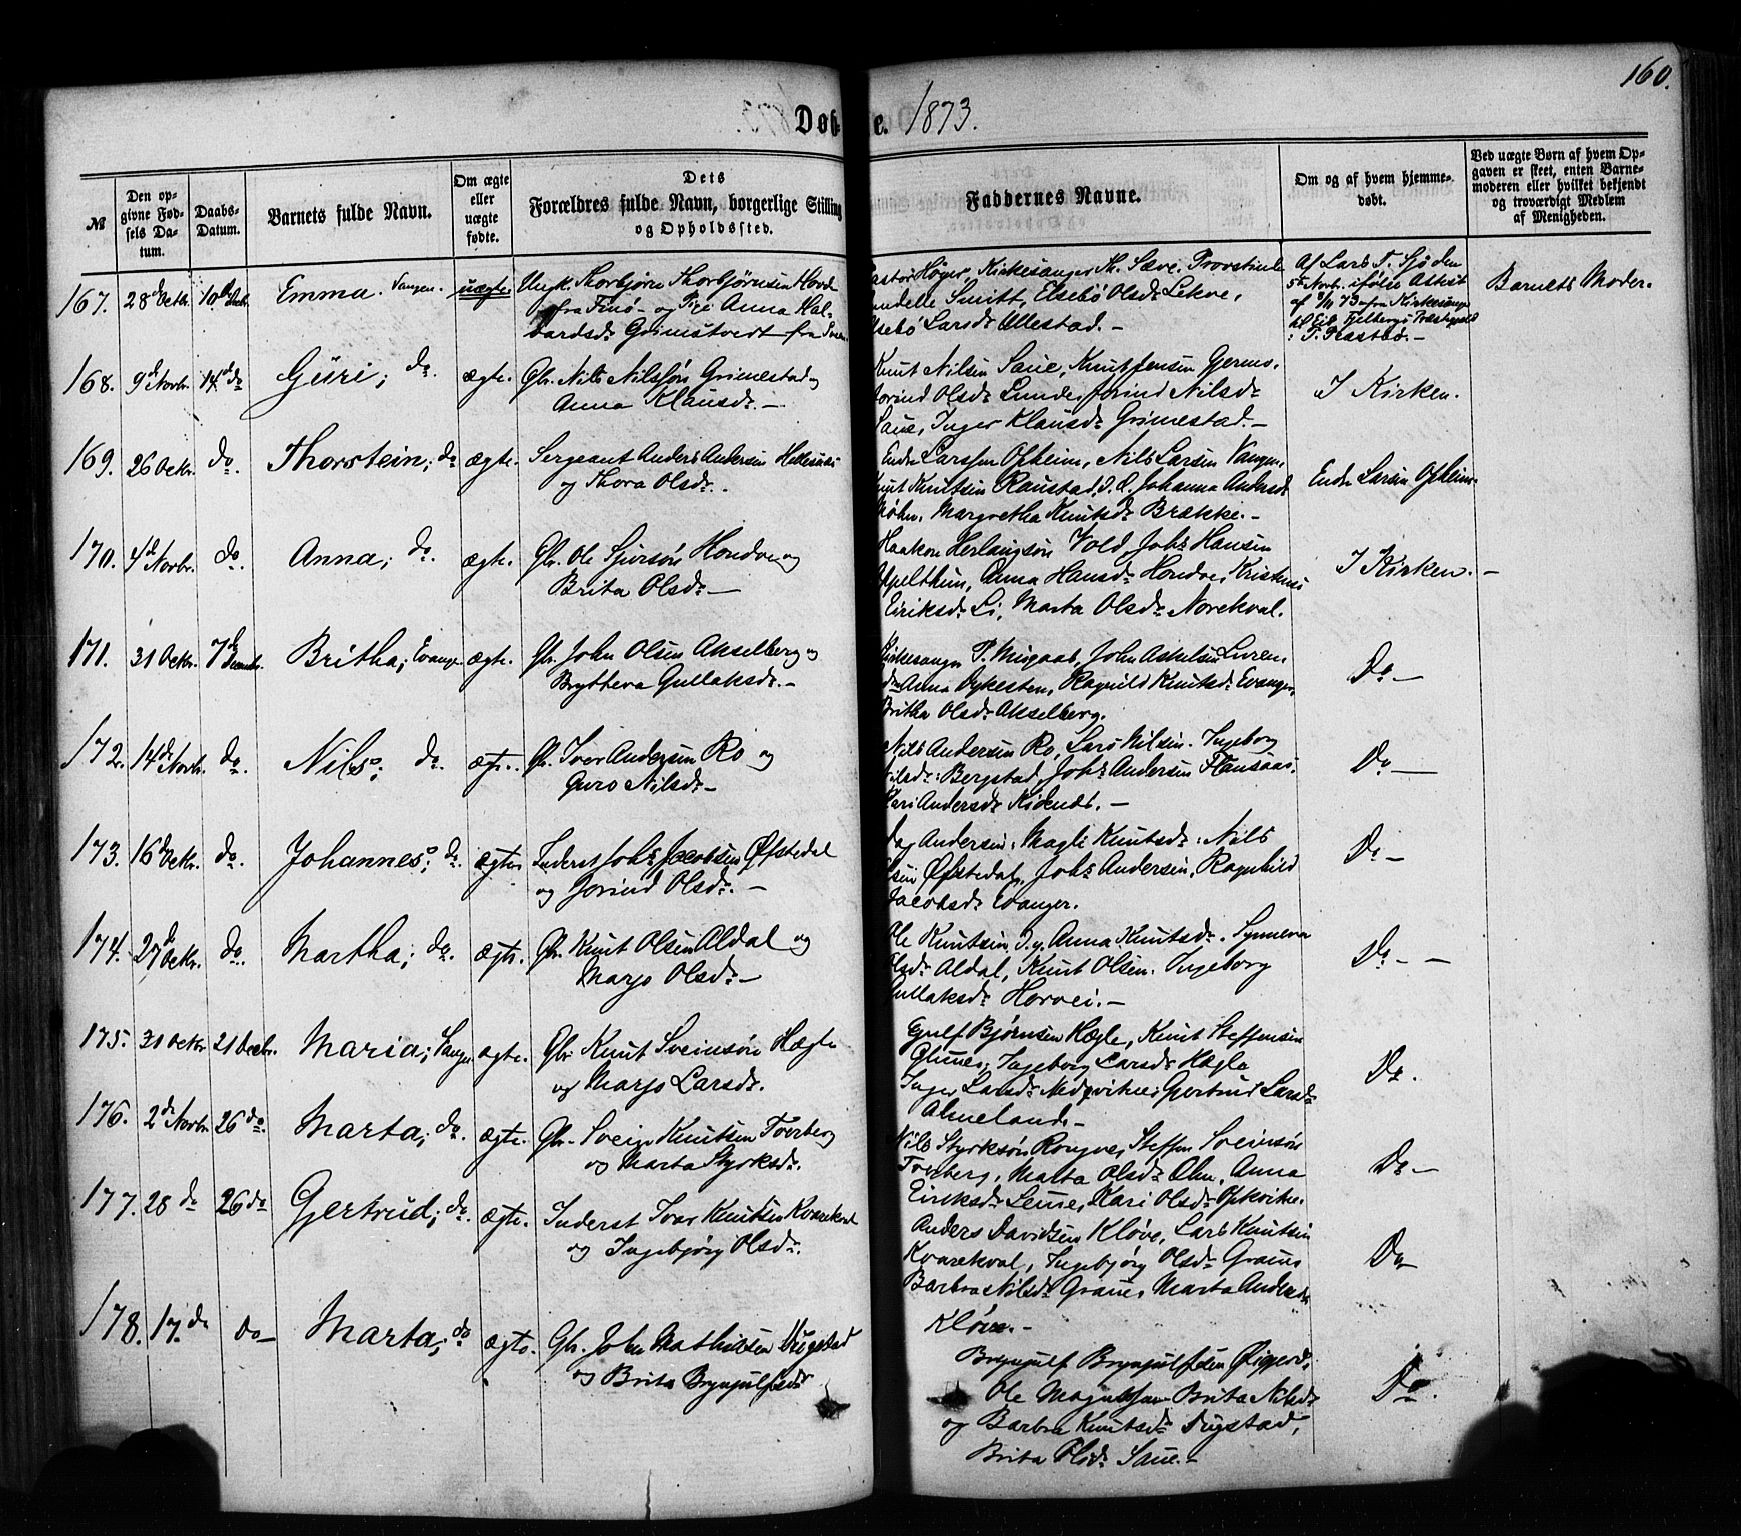 160.
Døb
e. 1873.
№
Den opgivne Fødsels Datum.
Daabs-Datum.
Barnets fulde Navn.
Om ægte eller uægte fødte.
Dets
Forældres fulde Navn, borgerlige Stilling
og Opholdssted.
Faddernes Navne.
Om og af hvem hjemmedøbt.
Ved uægte Børn af hvem Opgaven er skeet, enten Barnemoderen eller hvilket bekjendt og troværdigt Medlem af Menigheden.
167. 28de Octbr. Emma. Vangen. uægte. Ungk. Thorbjørn Thorbjørnsen
fra og Pige Anna Halvardsd. Grimstvedt fra
Høyer, Kirkesanger Th. Sæve, Provstinde
Smitt, Elsebø Olsdr Lekve,
Larsdr Ullestad.
Af Lars T.
5te Novbr. ifølge Attest
af 9/11 73 fra Kirkesanger
Barnets Moder.
168. 9de Novbr. 14de do Guri; do. ægte. Gbr. Nils Nilssøn Grimestad og
Anna Klausdr.
Knut Nilsen Saue, Knut Jensen Gjerme,
Olsdr Lunde, Jorind Nilsdr
Saue, Inger Klausdr Grimestad.
I Kirken.
169. 26 Octbr. do. Thorstein; do ægte. Sergeant Anders Andersen
og Thora Olsdr.
Endre Larssen Opheim, Nils Larsen Vangen,
Knut Knutsen Raustad, Johanna Andersdr
Margretha Knutsdr Brække.
Endre Larsen Opheim.
170. 4de Novbr. do. Anna; do. ægte. Gbr. Ole Sjursøn Hondve og
Brita Olsdr
Haakon Herlaugsøn Vold, Johs Hansen
Anna Hansdr Hondve,
Eiriksdr Li, Marta Olsdr Norekval.
I Kirken.
171. 31 Octbr. 7de Decembr. Britha; Evanger ægte. Gbr. John Olsen Akselberg og
Brytteva Gullaksdr.
Kirkesanger P. Misgaab, John Askelsen
Anna Dykesten, Ragnild Knutsdr Evanger,
Britha Olsdr Akselberg.
Do
172. 14de Novbr. do. Nils; do. ægte. Gbr. Iver Andersen Ro og
Guro Nilsdr
Nils Andersen Ro, Lars Nilsen. Ingeborg
Nilsdr Bergstad, Johs Andersen
Kari Andersdr
Do
173. 16de Octbr. do. Johannes; do. ægte. Inderst Johs Jacobsen Øfstedal
og Jorind Olsdr.
Andersen, Magli Knutsdr, Nils
Øfstedal, Johs Andersen, Ragnhild
Jacobsdr Evanger.
Do
174. 27de Octbr. do. Martha; do. ægte. Gbr. Knut Olsen Aldal og
Marjo Olsdr
Ole Knutsen, Anna Knutsdr. Synneva
Olsdr Aldal, Knut Olsen. Ingeborg
Gullaksdr Horvei.
Do
175. 31 Octbr. 21 Decbr. Maria; Vangen ægte. Gbr. Knut Sveinsøn Hægle
og Marjo Larsdr.
Gjulf Bjørnsen Hægle, Knut Steffensen
Glimes, Ingeborg Larsdr Hægle
Inger Larsdr Nedqvitne, Gjertrud Larsdr
Almeland.
Do.
176. 2de Novbr. 26 do. Marta; do. ægte. Gbr. Svein Knutsen Tverberg
og Marta Styrksdr.
Nils Styrksøn Rongve, Steffen Sveinsøn
Tverberg, Malta Olsdr Alm, Anna
Eiriksdr Leine, Kari Olsdr
Do
177. 28 do 26 do Gjertrud; do. ægte. Inderst Ivar Knutsen Kvarekval
og Ingebjørg Olsdr.
Anders Davidsen Kløve, Lars Knutsen
Kvarekval, Ingebjørg Olsdr Graue
Barbra Nilsdr Graue, Marta Andersdr
Kløve.
Do
178. 17. do do Marta; do ægte. Gbr. John Mathissen Dugstad
og Brita Brynjulfsdr
Brynjulf Brynjulfsen
Ole Magnussen Brita Nilsdr
og Barbra Knutsdr Dugstad,
Brita Olsdr Saue.
Do.